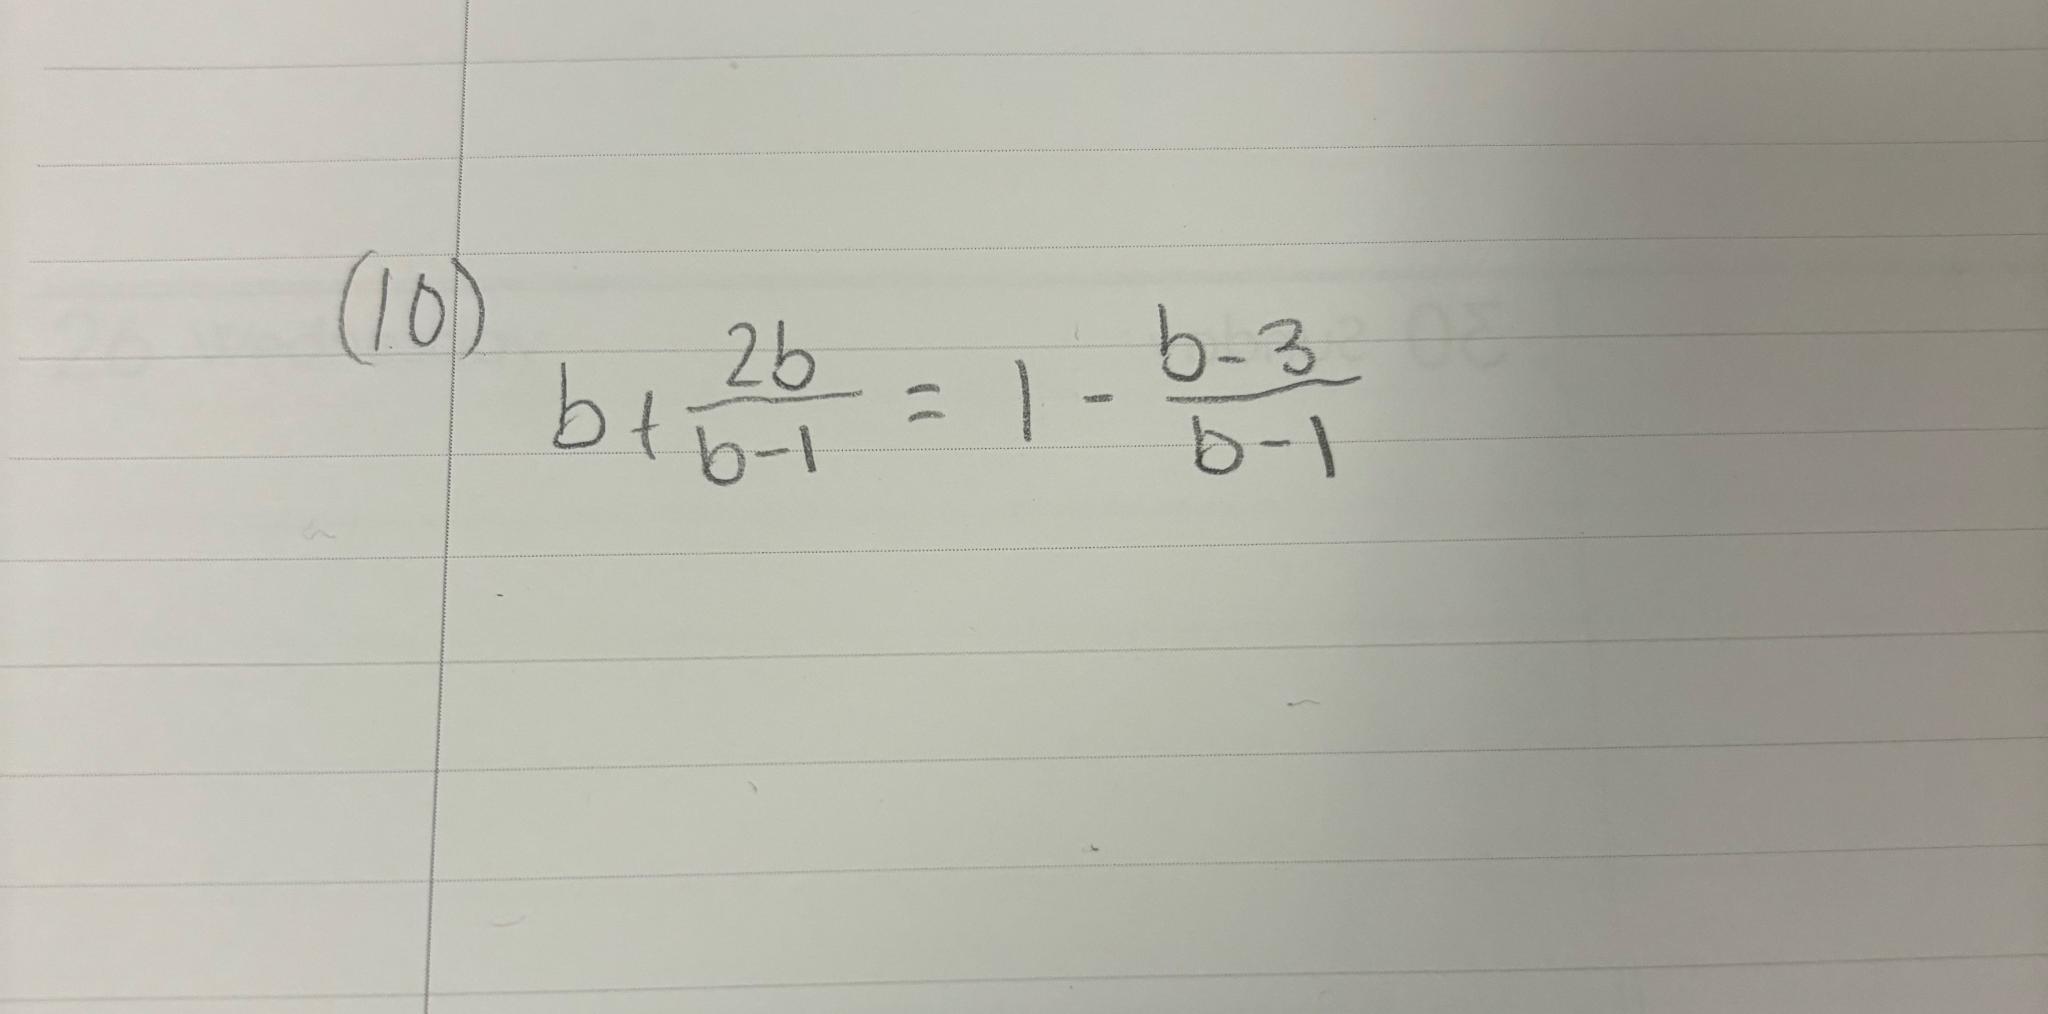 (10)
b + \frac{2b}{b-1} = 1 - \frac{b-3}{b-1}